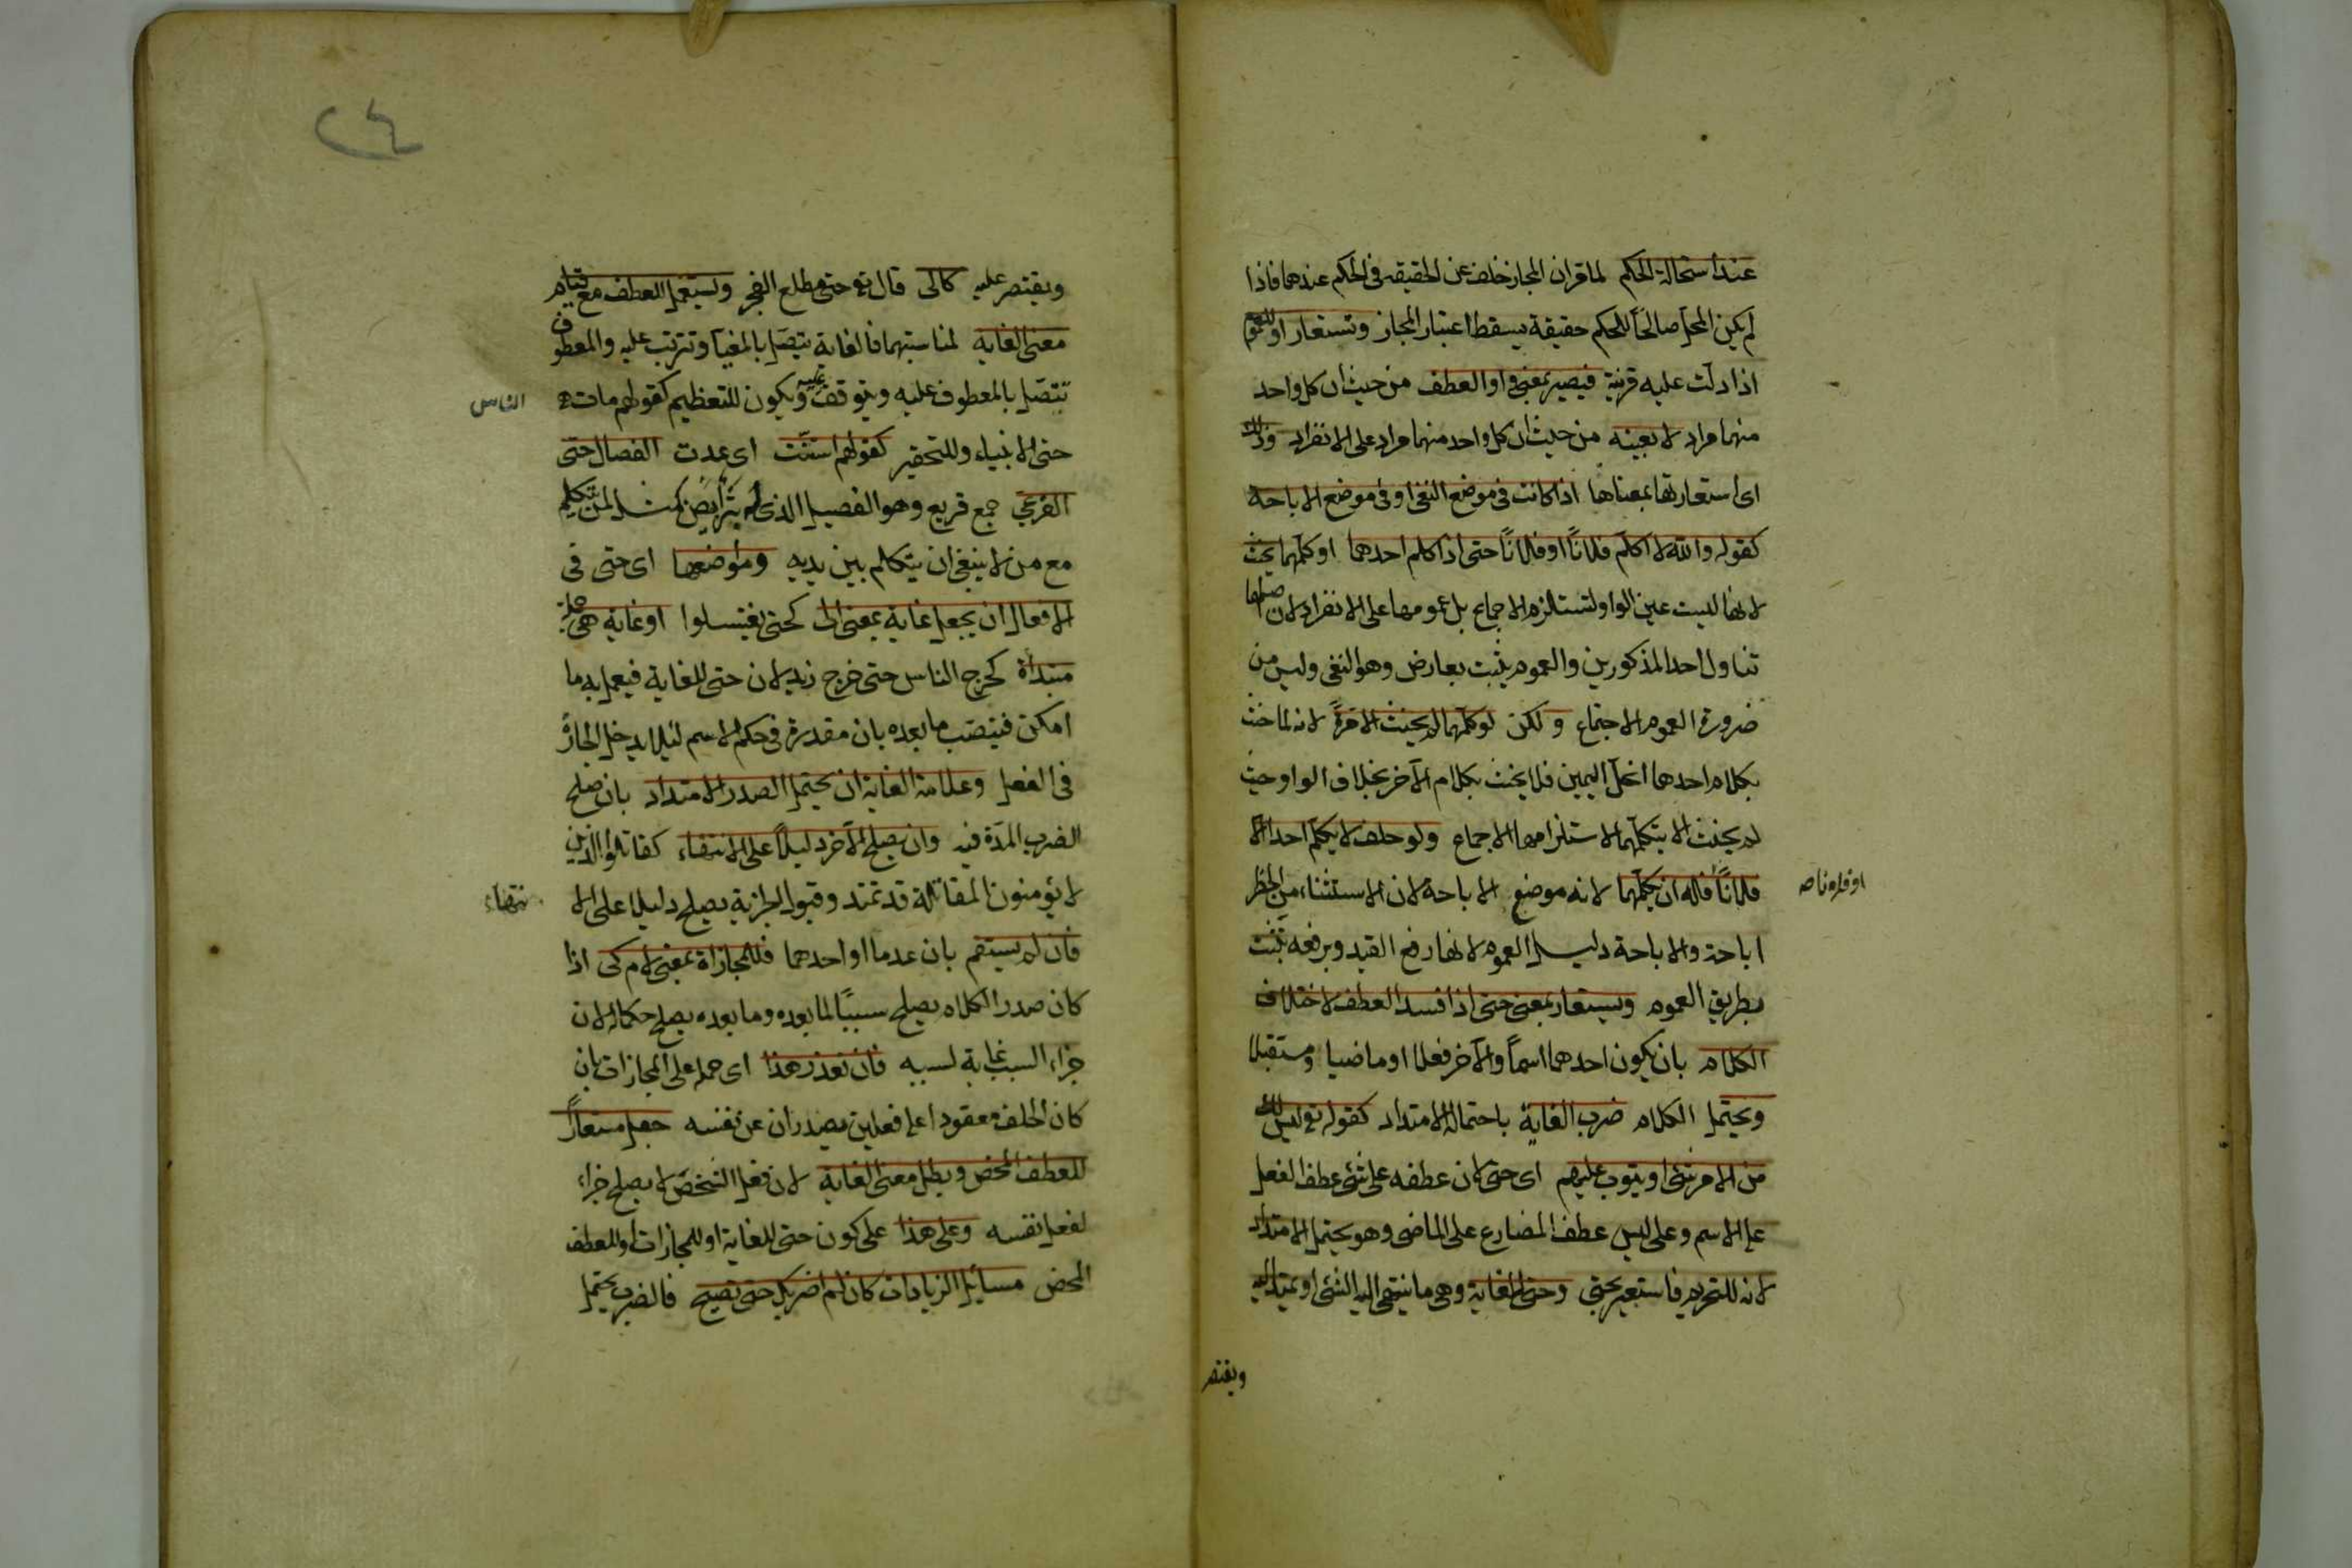 عند استحالة الحكم لما قران المجاز خلف عن الحقيقة فى الحكم عندهما فاذا
لم يكن المحل صالحاً للحكم حقيقة يسقط اعتبار المجاز وتستعار او للعموم
اذا دلت عليه قرينة فيصير بمعنى واو العطف من حيث ان كل واحد
منهما مراد لا بعينه من حيث ان كل واحد منهما مراد على الانفراد وذلك
اى استعارتها بمعناها اذا كانت فى موضع النفى او فى موضع الاباحة
كقوله والله لا اكلم فلاناً او فلاناً حتى اذا كلم احدهما او كلمهما يحنث
لانها ليست عين الواو لتستلزم الاجماع بل عمومها على الانفراد لان اصلها
تناول احد المذكورين والعموم يثبت بعارض وهو النفى وليس من
ضرورة العموم الاجتماع ولكن لو كلمهما لم يحنث الا مرة لانه لما حنث
بكلام احدهما انحل اليمين فلا يحنث بكلام الآخر بخلاف الواو حيث
لم يحنث الا بتكلمهما لاستلزامها الاجماع ولو حلف لا يكلم احدا الا
فلاناً فله ان يكلمهما لانه موضع الاباحة لان الاستثناء من الحظر
او فلانا صح
اباحة والاباحة دليل العموم لانها رفع القيد وبرفعه يثبت
بطريق العموم ويستعار بمعنى حتى اذا فسد العطف لاختلاف
الكلام بان يكون احدهما اسماً والآخر فعلا او ماضيا ومستقبلا
ويحتمل الكلام ضرب الغاية باحتماله الامتداد كقوله تع ليس لك
من الامر شئ او يتوب عليهم اى حتى لان عطفه على شئ عطف الفعل
على الاسم وعلى ليس عطف المضارع على الماضى وهو يحتمل الامتداد
لانه للتحريم فاستعير بحتى وحتى للغاية وهى ما ينتهى اليه الشئ او يمتد اليه
ويقتصر
٢٤
ويقتصر عليه كالى قال تع حتى مطلع الفجر وتستعمل للعطف مع قيام
معنى الغاية لمناسبتهما فالغاية يتصل بالمغيا وتترتب عليه والمعطوف
يتصل بالمعطوف عليه ويتوقف عليه ويكون للتعظيم كقولهم مات
الناس
حتى الانبياء وللتحقير كقولهم استنت اى عدت الفصال حتى
القرعى جمع قريع وهو الفصيل الذى له بثر ابيض كمثل لمن يتكلم
مع من لا ينبغى ان يتكلم بين يديه ومواضعها اى حتى فى
الافعال ان يجعل غاية بمعنى الى كحتى تغتسلوا او غاية هى جملة
مبتدأة كخرج الناس حتى خرج زيد لان حتى للغاية فيعمل به ما
امكن فينتصب ما بعده بان مقدرة فى حكم الاسم لئلا يدخل الجارّ
فى الفعل وعلامة الغاية ان يحتمل الصدر الامتداد بان صلح
الضرب المدة فيه وان يصلح الآخر دليلاً على الانتهاء كقاتلوا الذين
لا يؤمنون المقاتلة قد تمتد وقبول الجزية يصلح دليلا على الا
نتهاء
فان لم يستقم بان عدما او احدهما فللمجازاة بمعنى لام كى اذا
كان صدر الكلام يصلح سببًا لما بعده وما بعده يصلح حكما له لان
جزاء السبب غاية لسببه فان تعذر هذا اى حمله على المجازات بان
كان الحلف معقودا على فعلين يصدران عن نفسه جعل مستعاراً
للعطف المحض وبطل معنى الغاية لان فعل الشخص لا يصلح جزاء
لفعل نفسه وعلى هذا على كون حتى للغاية او للمجازات او للعطف
المحض مسائل الزيادات كان لم اضربك حتى تصيح فالضرب يحتمل